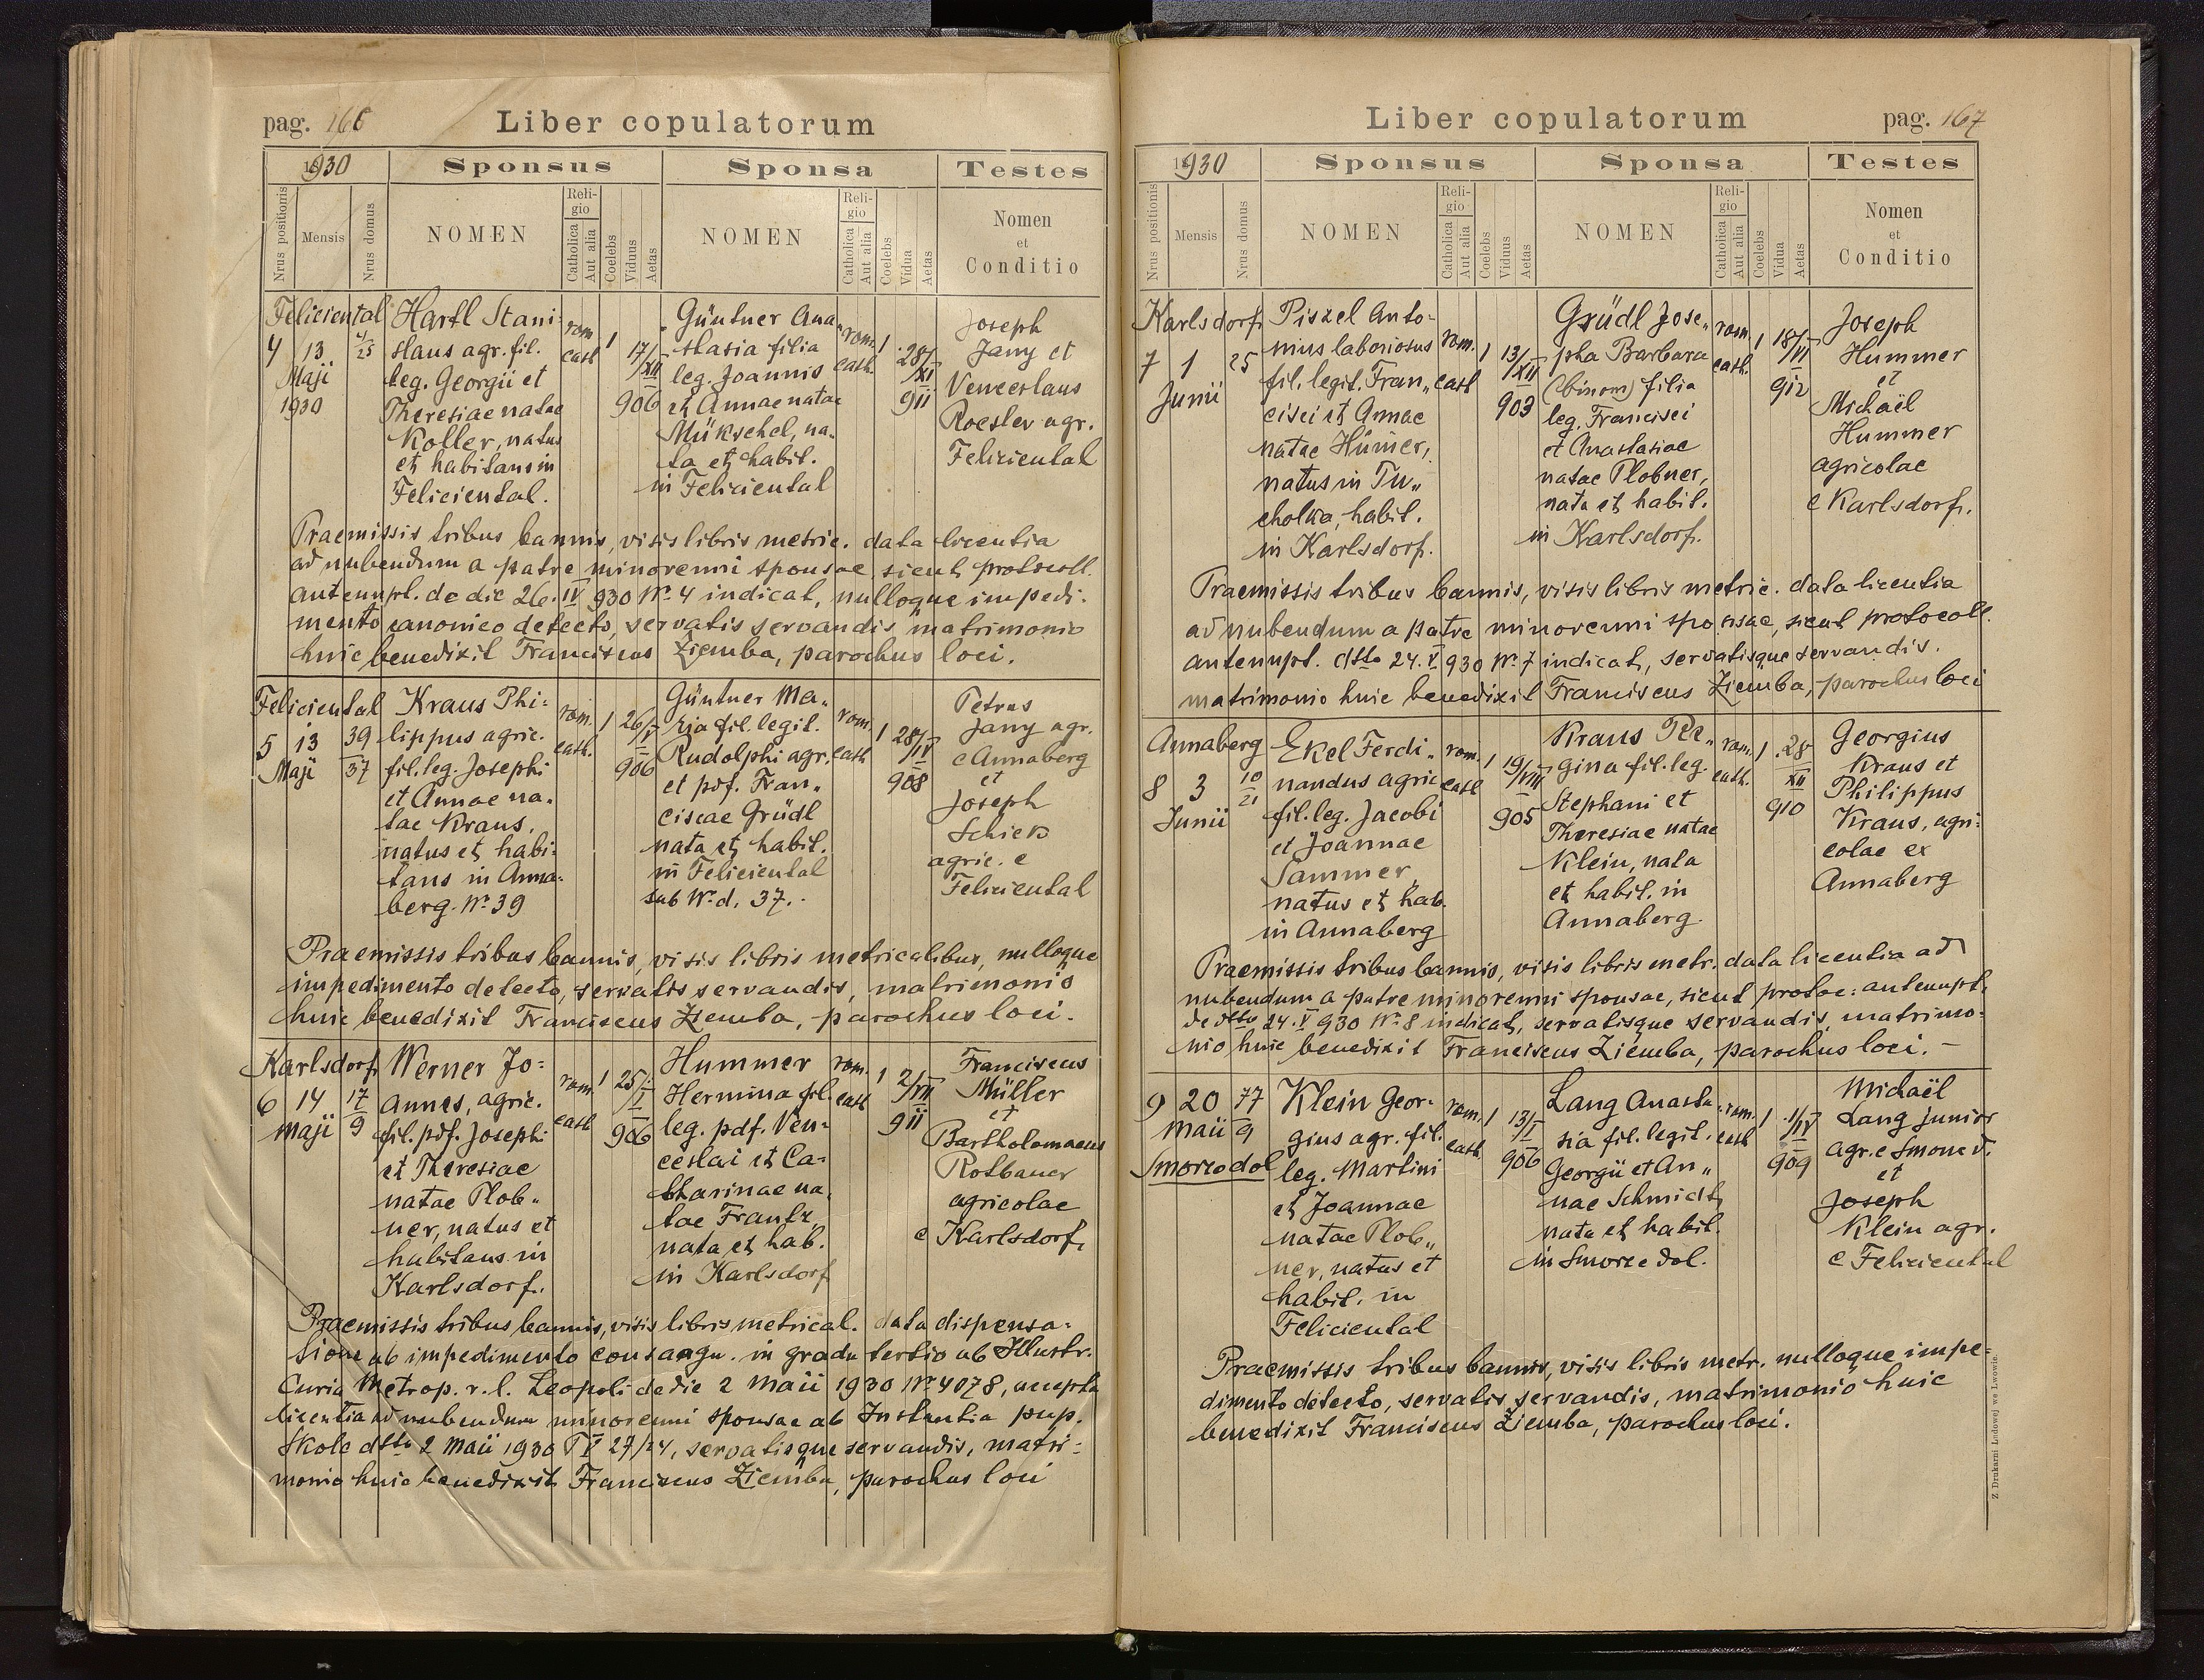 pag. 166
Liber copulatorum
1930
Sponsus
Sponsa
Testes
Nrus positionis
Mensis
Nrus domus
NOMEN
Religio
Catholica
Aut alia
Coelebs
Viduus
Aetas
NOMEN
Religio
Catholica
Aut alia
Coelebs
Vidua
Aetas
Nomen
et
Conditio
Feliciental
4 13
Maji
1930
25
Hartl Stani-
slaus agr. fil.
leg. Georgii et
Theresiae natae
Koller, natus
et habitans in
Feliciental.
rom.
cath
1
17/XII
906
Güntner Ana-
stasia filia
leg. Joannis
et Annae natae
Mükschel, na-
ta et habit.
in Feliciental
rom.
cath.
1
28/XI
911
Joseph
Jany et
Venceslaus
Roesler agr.
Feliziental
Praemissis tribus bannis, visis libris metric. data licentia
ad nubendum a patre minorenni sponsae, sicut protocoll.
antenupt. de die 26.IV 930 Nr. 4 indicat, nulloque impedi-
mento canonico detecto, servatis servandis matrimonio
huic benedixit Franciscus Ziemba, parochus loci.
Feliciental
5 13
Maji
39
37
Kraus Phi-
lippus agric.
fil. leg. Josephi
et Annae na-
tae Kraus,
natus et habi-
tans in Anna-
berg. Nr. 39
rom.
cath.
1
26/V
906
Güntner Ma-
ria fil. legit.
Rudolphi agr.
et pdf. Fran-
ciscae Grüdl
nata et habit.
in Feliciental
sub Nr. d. 37.
rom.
cath
1
28/IV
908
Petrus
Jany agr.
e Annaberg
et
Joseph
Schick
agric. e
Feliziental
Praemissis tribus bannis, visis libris metricalibus, nulloque
impedimento detecto, servatis servandis, matrimonio
huic benedixit Franciscus Ziemba, parochus loci.
Karlsdorf
6 14
Maji
17
9
Werner Jo-
annes, agric.
fil. pdf. Josephi
et Theresiae
natae Plob-
ner, natus et
habitans in
Karlsdorf.
rom.
cath
1
25/I
906
Hummer
Hermina fil.
leg. pdf. Ven-
ceslai et Ca-
tharinae na-
tae Frantz
nata et hab.
in Karlsdorf
rom.
cath
1
2/VII
911
Franciscus
Müller
et
Bartholomaeus
Rotbauer
agricolae
e Karlsdorf,
Praemissis tribus bannis, visis libris metrical. data dispensa-
tione ab impedimento consangu. in gradu tertio ab Illustr.
Curia Metrop. r. l. Leopoli de die 2 Maii 1930 Nr 4078, accepta
licentia ad nubendum minorenni sponsae ab Instantia pup.
Skole dtto 2 Maii 1930 P V 27/24, servatisque servandis, matri-
monio huic benedixit Franciscus Ziemba, parochus loci
Liber copulatorum
pag. 167
1930
Sponsus
Sponsa
Testes
Nrus positionis
Mensis
Nrus domus
NOMEN
Religio
Catholica
Aut alia
Coelebs
Viduus
Aetas
NOMEN
Religio
Catholica
Aut alia
Coelebs
Vidua
Aetas
Nomen
et
Conditio
Karlsdorf
7 1
Junii
25
Piszel Anto-
nius laboriosus
fil. legit. Fran-
cisci et Annae
natae Hümer,
natus in Tu-
cholka, habit.
in Karlsdorf.
rom.
cath
1
13/XII
903
Grüdl Jose-
pha Barbara
(binom) filia
leg. Francisci
et Anastasiae
natae Plobner,
nata et habit.
in Karlsdorf.
rom.
cath.
1
18/III
912
Joseph
Hummer
et
Michaël
Hummer
agricolae
e Karlsdorf.
Praemissis tribus bannis, visis libris metric. data licentia
ad nubendum a patre minorenni sponsae, sicut protocoll.
antenupt. dtto 24.V 930 Nr. 7 indicat, servatisque servandis.
matrimonio huic benedixit Franciscus Ziemba, parochus loci
Annaberg
8 3
Junii
10
21
Ekel Ferdi-
nandus agric
fil. leg. Jacobi
et Joannae
Sammer,
natus et hab.
in Annaberg
rom.
cath
1
19/VIII
905
Kraus Re-
gina fil. leg.
Stephani et
Theresiae natae
Klein, nata
et habit. in
Annaberg.
rom.
cath.
1
28
XII
910
Georgius
Kraus et
Philippus
Kraus, agri-
colae ex
Annaberg
Praemissis tribus bannis, visis libris metr. data licentia ad
nubendum a patre minorenni sponsae, sicut protoc: antenupt.
de dtto 24.V 930 Nr. 8 indicat, servatisque servandis, matrimo-
nio huic benedixit Franciscus Ziemba, parochus loci. –
9 20
Maii
Smorzedol
77
9
Klein Geor-
gius agr. fil.
leg. Martini
et Joannae
natae Plob-
ner, natus et
habit. in
Feliciental
rom.
cath.
1
13/I
906
Lang Anasta-
sia fil. legit.
Georgii et An-
nae Schmidt,
nata et habit.
in Smorzedol.
rom.
cath
1
1/IV
909
Michaël
Lang junior
agr. e Smorzed.
et
Joseph
Klein agr.
e Feliziental
Praemissis tribus bannis, visis libris metr. nulloque impe-
dimento detecto, servatis servandis, matrimonio huic
benedixit Franciscus Ziemba, parochus loci.
Z Drukarni Ludowej we Lwowie.